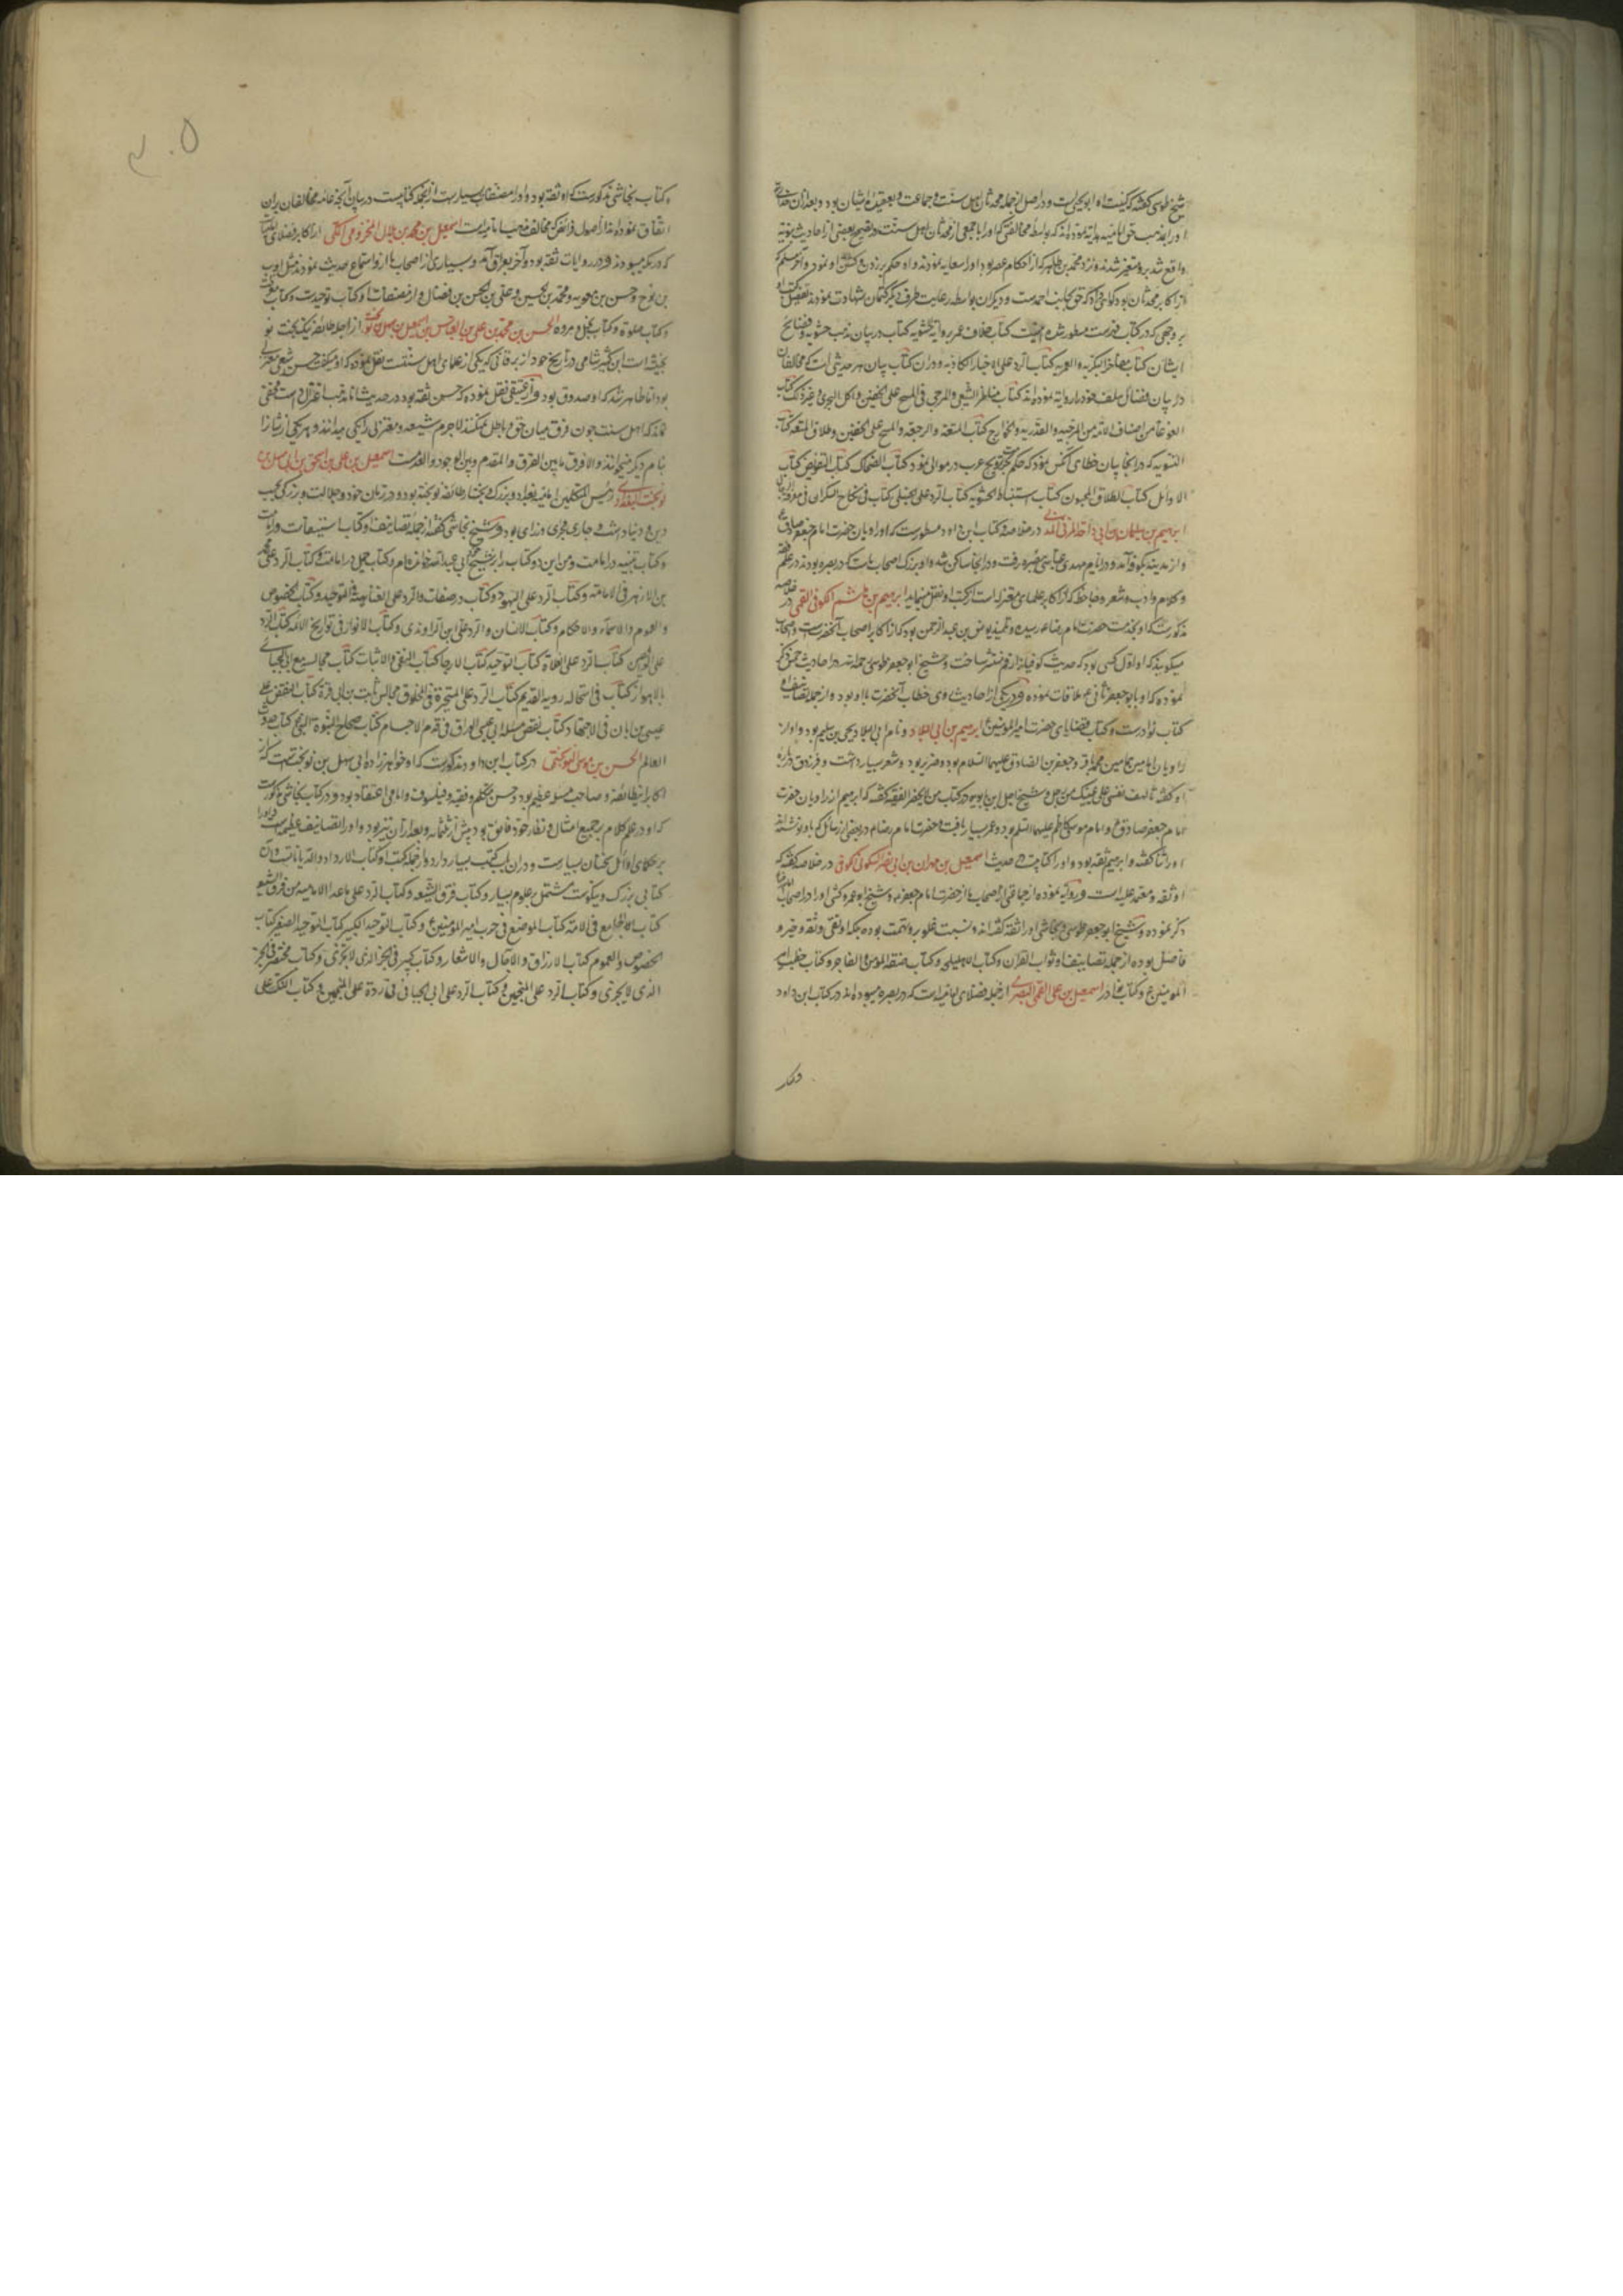 شیخ طوسی گفته که کنیت او ابو یحیی است و در اصل از جمله محدثان اهل سنت و جماعت و بعقیده ایشان بود و بعد از آن
او را بمذهب حق امامیه هدایت نموده اند که بواسطه مخالفتی که او را با جمعی از محدثان اهل سنت در تصحیح بعضی از احادیث نبویه
واقع شد برو متغیر شدند و نزد محمد بن طاهر که از حکام عصر بود او را سعایه نمودند و او حکم بر زدن و کشتن او نمود و آخر مسلم که
از اکابر محدثان بود گواهی داد که حق بجانب احمد است و دیگران بواسطه رعایت طرف دیگر کتمان شهادت نمودند
بر وجهی که در کتاب فهرست مسطور شده کتاب خلاف عمر بروایة الحشویه کتاب در بیان مذهب حشویه و فضایح
ایشان کتاب مفاخر البکریه والعمریه کتاب الرد علی الاخبار الکاذبه و در آن کتاب بیان هر حدیثی است که مخالفان
در بیان فضائل سلف خود بروایة نموده اند کتاب مناظره الشیعی والمرجی فی المسح علی الخفین واکل الجری وغیر ذلک کتاب
الغوغا من اصناف الامه من المرجئه والقدریه والخوارج کتاب المتعه والرجعه والمسح علی الخفین وطلاق المتعه کتاب
التسویه که در آنجا بیان خطای آنکس نموده که حکم تزویج عرب در موالی نمود کتاب الضحاک کتاب التفویض کتاب
الاوائل کتاب الطلاق المجنون کتاب استنباط الحشویه کتاب الرد علی الحنبلی کتاب فی نکاح السکران
ابرهیم بن سلیمان بن ابی داحه المزنی در خلاصه و کتاب ابن داود مسطورست که او راویان حضرت امام جعفر صادق ع
و از مدینه بکوفه آمد و در ایام مهدی عباسی ببصره رفت و در آنجا ساکن شد و او بزرگ اصحاب ماست که در بصره بودند در علم فقه
و کلام و ادب و شعر و جاحظ که از اکابر علمای معتزله است از کتب او نقل مینماید ابرهیم بن هاشم الکوفی القمی در خلاصه
مذکورست که او بخدمت حضرت امام رضا ع رسیده و تلمیذ یونس بن عبد الرحمن بود که از اکابر اصحاب آنحضرت است و اصحاب
میگویند که او اول کسی بود که حدیث کوفیان را در قم منتشر ساخت و شیخ ابو جعفر طوسی رحمه الله در احادیث خمس ذکر
نموده که او با ابو جعفر ثانی ع ملاقات نموده و در یکی از احادیث وی خطاب آنحضرت با او بود و از جمله تصانیف او
کتاب نوادرست و کتاب قضایای حضرت امیر المؤمنین ع ابرهیم بن ابی البلاد و نام ابی البلاد یحیی بن سلیم بود و او از
راویان امامین همامین محمد باقر و جعفر بن الصادق علیهما السلام بود و ضریر بود و شعر بسیار داشت و فرزدق درباره
او گفته یا لهف نفسی علی عینیک من رجل و شیخ اجل ابن بابویه در کتاب من لا یحضر الفقیه گفته که ابرهیم از راویان حضرت
امام جعفر صادق ع و امام موسی کاظم علیهما السلم بود و عمر بسیار یافت و حضرت امام رضا م در بعضی از رسائل که باو نوشته اند
او را ثنا گفته و ابرهیم ثقه بود و او را کتابیست در حدیث اسمعیل بن مهران بن ابی نصر السکونی الکوفی در خلاصه گفته که
او ثقه و معتمد علیه است و روایة نموده از جماعتی از اصحاب ما از حضرت امام جعفر ع و شیخ ابو عمرو کشی او را در اصحاب
ذکر نموده و شیخ ابو جعفر طوسی و نجاشی او را ثقه گفته اند و نسبت غلو برو تهمت بوده بلکه او تقی و ثقه و خیر و
فاضل بوده از جمله تصانیف او ثواب القرآن و کتاب الاهلیلجه و کتاب صفة المؤمن والفاجر و کتاب خطب امیر
المومنین ع و کتاب نوادر اسمعیل بن علی القمی البصری از جمله فضلای امامیه است که در بصره میبوده اند در کتاب ابن داود
و کتاب نجاشی مذکورست که او ثقه بود و او را مصنفات بسیار است از آنجمله کتابیست در بیان آنچه عامه مخالفان بران
اتفاق نموده اند از اصول فرائض که مخالف مذهب امامیه است اسمعیل بن محمد بن هلال المخزومی المکی از اکابر فضلای
که در مکه میبودند و در روایات ثقه بود و آخر بعراق آمد و بسیاری از اصحاب ما ازو استماع حدیث نمودند مثل ایوب
بن نوح و حسن بن معویه و محمد بن الحسین و علی بن الحسن بن فضال و از مصنفات او کتاب توحیدست و کتاب معرفت
و کتاب صلوة و کتاب تجمل و مروه الحسن بن محمد بن علی بن العباس بن اسمعیل بن سهل بن نوبخت از اجله طائفه نیک بخت نو
بختیه است ابن کثیر شامی در تاریخ خود از برقانی که یکی از علمای اهل سنت است نقل نموده که او میگفت حسن شیعی معتزلی
بود اما ظاهر شد که او صدوق بود و از عتیقی نقل نموده که حسن ثقه بود در حدیث اما مذهب اعتزال داشت مخفی
نماند که اهل سنت چون فرق میان حق و باطل نمیکنند لاجرم شیعه و معتزلی را یکی میدانند و هر یکی از ایشان را
بنام دیگر میخوانند والا فرق ما بین الفرق والمقدم و بین الوجود والعدمست اسمعیل بن علی بن اسحق بن ابی سهل بن
نوبخت البغدادی رئیس المتکلمین امامیه بغداد و بزرگ نیک بختان طائفه نوبختیه بود و در زمان خود در جلالت و بزرگی بحسب
دین و دنیا داشت و جاری مجرای وزرای بود و شیخ نجاشی گفته از جمله تصانیف او کتاب استیفاست در امامت
و کتاب تنبیه در امامت و من این دو کتاب را بر شیخ ابی عبدالله خوانده ام و کتاب جمل در امامت و کتاب الرد علی محمد
بن الازهر فی الامامه و کتاب الرد علی الیهود و کتاب در صفات و الرد علی ابی العتاهیة فی التوحید و کتاب الخصوص
والعموم والاسماء والاحکام و کتاب الانسان والرد علی ابن الراوندی و کتاب الانوار فی تواریخ الائمه کتاب الرد
علی الواقفین کتاب الرد علی الغلاة کتاب التوحید کتاب الارجا کتاب النفی والاثبات کتاب مجالسه مع ابی علی الجبائی
بالاهواز کتاب فی استحاله رویه القدیم کتاب الرد علی المجبرة فی المخلوق مجالس ثابت بن ابی قرة کتاب النقض علی
عیسی بن ابان فی الاجتهاد کتاب نقض مسئله ابی عیسی الوراق فی قدم الاجسام کتاب الاحتجاج لنبوة النبی کتاب حدوث
العالم الحسن بن موسی النوبختی در کتاب ابن داود مذکورست که او خواهرزاده ابی سهل بن نوبخت است که از
اکابر اینطائفه و صاحب مسلم عظیم بود و حسن متکلم و فقیه و فیلسوف و امامی اعتقاد بود و در کتاب نجاشی مذکورست
که او در علم کلام بر جمیع امثال و نظائر خود فایق بود پیش از ثلثمائه و بعد از آن نیز بود و او را تصانیف عظیم هست
بر حکمای اوائل سخنان بسیارست و در آن باب کتب بسیار دارد و از جمله کتب او کتاب الآراء والدیانات است و آن
کتابی بزرگ و نیکوست مشتمل بر علوم بسیار و کتاب فرق الشیعه و کتاب الرد علی ما عدا الامامیه من فرق الشیع
کتاب الجامع فی الامامة کتاب الموضع فی حرب امیر المؤمنین ع و کتاب التوحید الکبیر کتاب التوحید الصغیر کتاب
الخصوص والعموم کتاب الارزاق والآجال والاسعار و کتاب کبیر فی الجزء الذی لا یتجزی و کتاب مختصر فی الجزء
الذی لا یتجزی و کتاب الرد علی المنجمین و کتاب الرد علی ابی علی الجبائی فی رده علی المنجمین و کتاب النکت علی